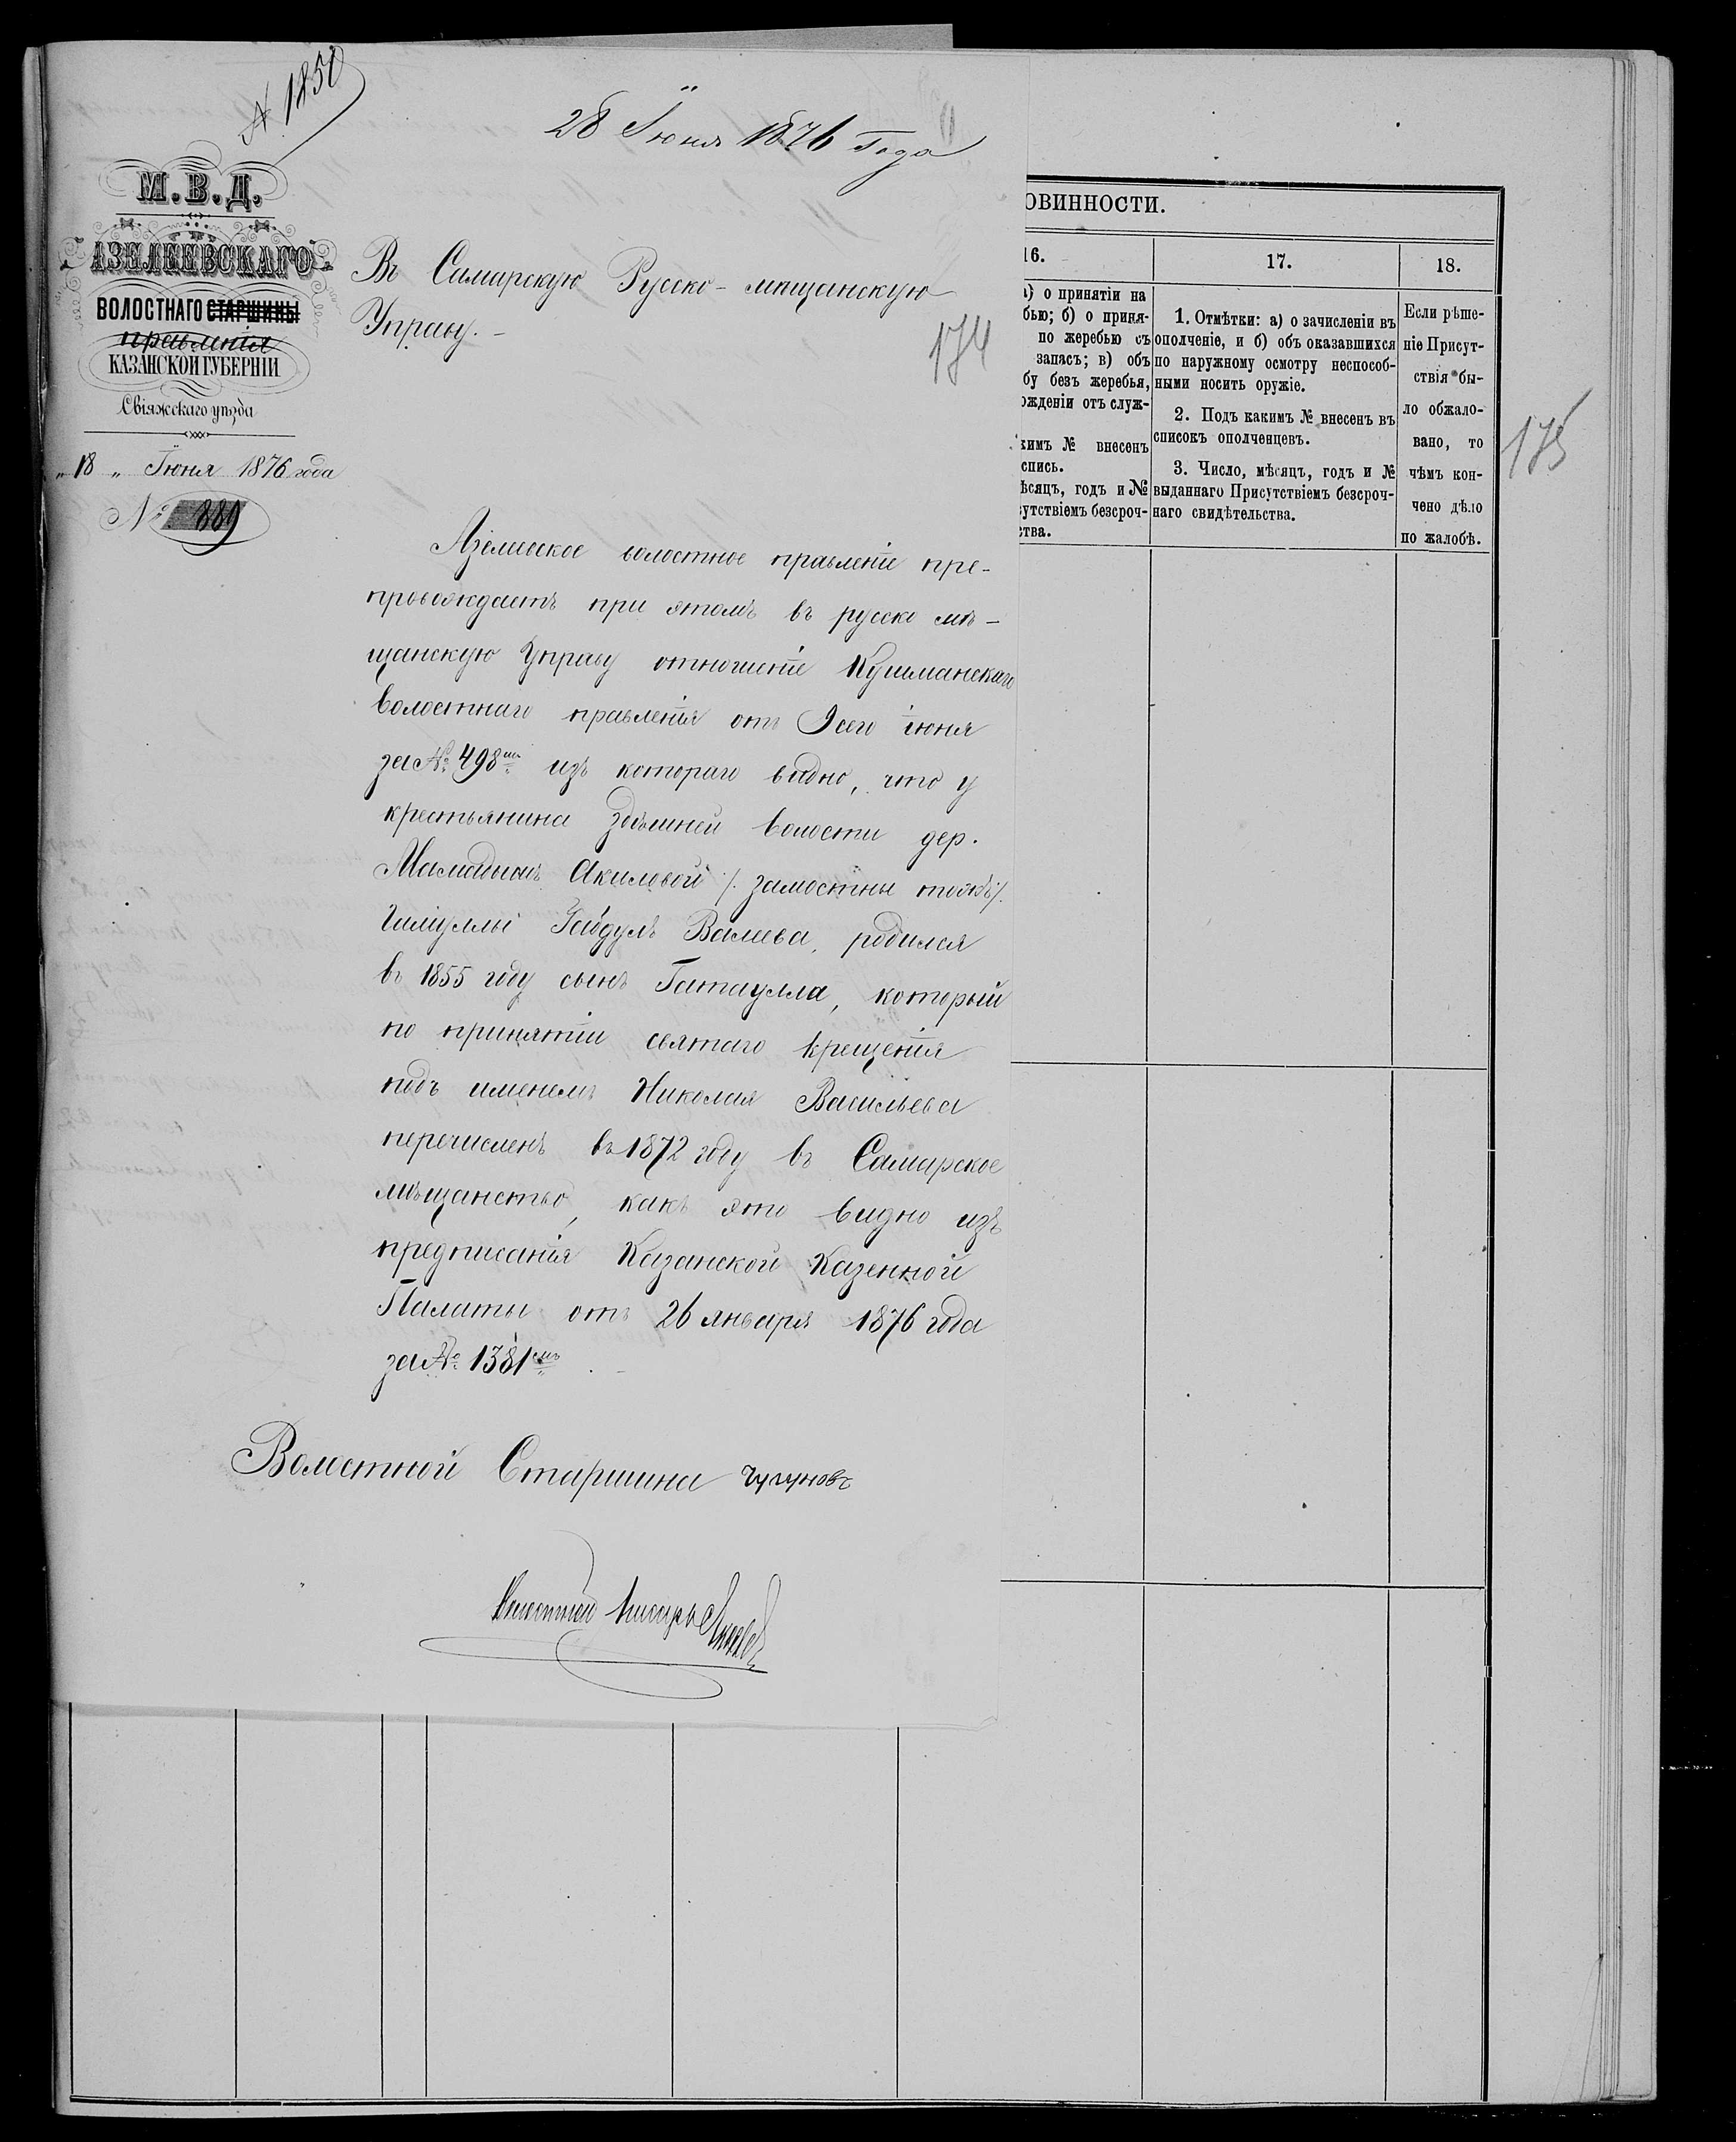 № 1850
28 Іюня 1876 Года
М.В.Д.
АЗЕЛЕЕВСКАГО
ВОЛОСТНАГО СТАРШИНЫ
правленія
КАЗАНСКОЙ ГУБЕРНІИ
Свіяжскаго уѣзда
„ 18 „ Іюня 1876 года
№ 889
Въ Самарскую Русско-мѣщанскую
Управу. –
174
Азелеевское волостное правленіе пре-
провождаетъ при этомъ въ русско мѣ-
щанскую Управу отношеніе Кушманскаго
волостнаго правленія отъ 9 сего іюня
за № 498мъ изъ котораго видно, что у
крестьянина здѣшней волости дер.
Акиловой
Валеева, родился
въ 1855 году сынъ Гатаулла, который
по принятіи святаго крещенія
подъ именемъ Николая Васильева
перечисленъ въ 1872 году въ Самарское
мѣщанство, какъ это видно изъ
предписанія Казанской Казенной
Палаты отъ 26 января 1876 года
за № 1381мъ. –
Волостной Старшина Чугуновъ
Волостной писарь
ОВИННОСТИ.
16.
17.
18.
а) о принятіи на
бью; б) о приня-
по жеребью съ
запасъ; в) объ
бу безъ жеребья,
ожденіи отъ служ-
кимъ № внесенъ
спись.
ѣсяцъ, годъ и №
сутствіемъ безсроч-
ства.
1. Отмѣтки: а) о зачисленіи въ
ополченіе, и б) объ оказавшихся
по наружному осмотру неспособ-
ными носить оружіе.
2. Подъ какимъ № внесенъ въ
списокъ ополченцевъ.
3. Число, мѣсяцъ, годъ и №
выданнаго Присутствіемъ безсроч-
наго свидѣтельства.
Если рѣше-
ніе Присут-
ствія бы-
ло обжало-
вано, то
чѣмъ кон-
чено дѣло
по жалобѣ.
175